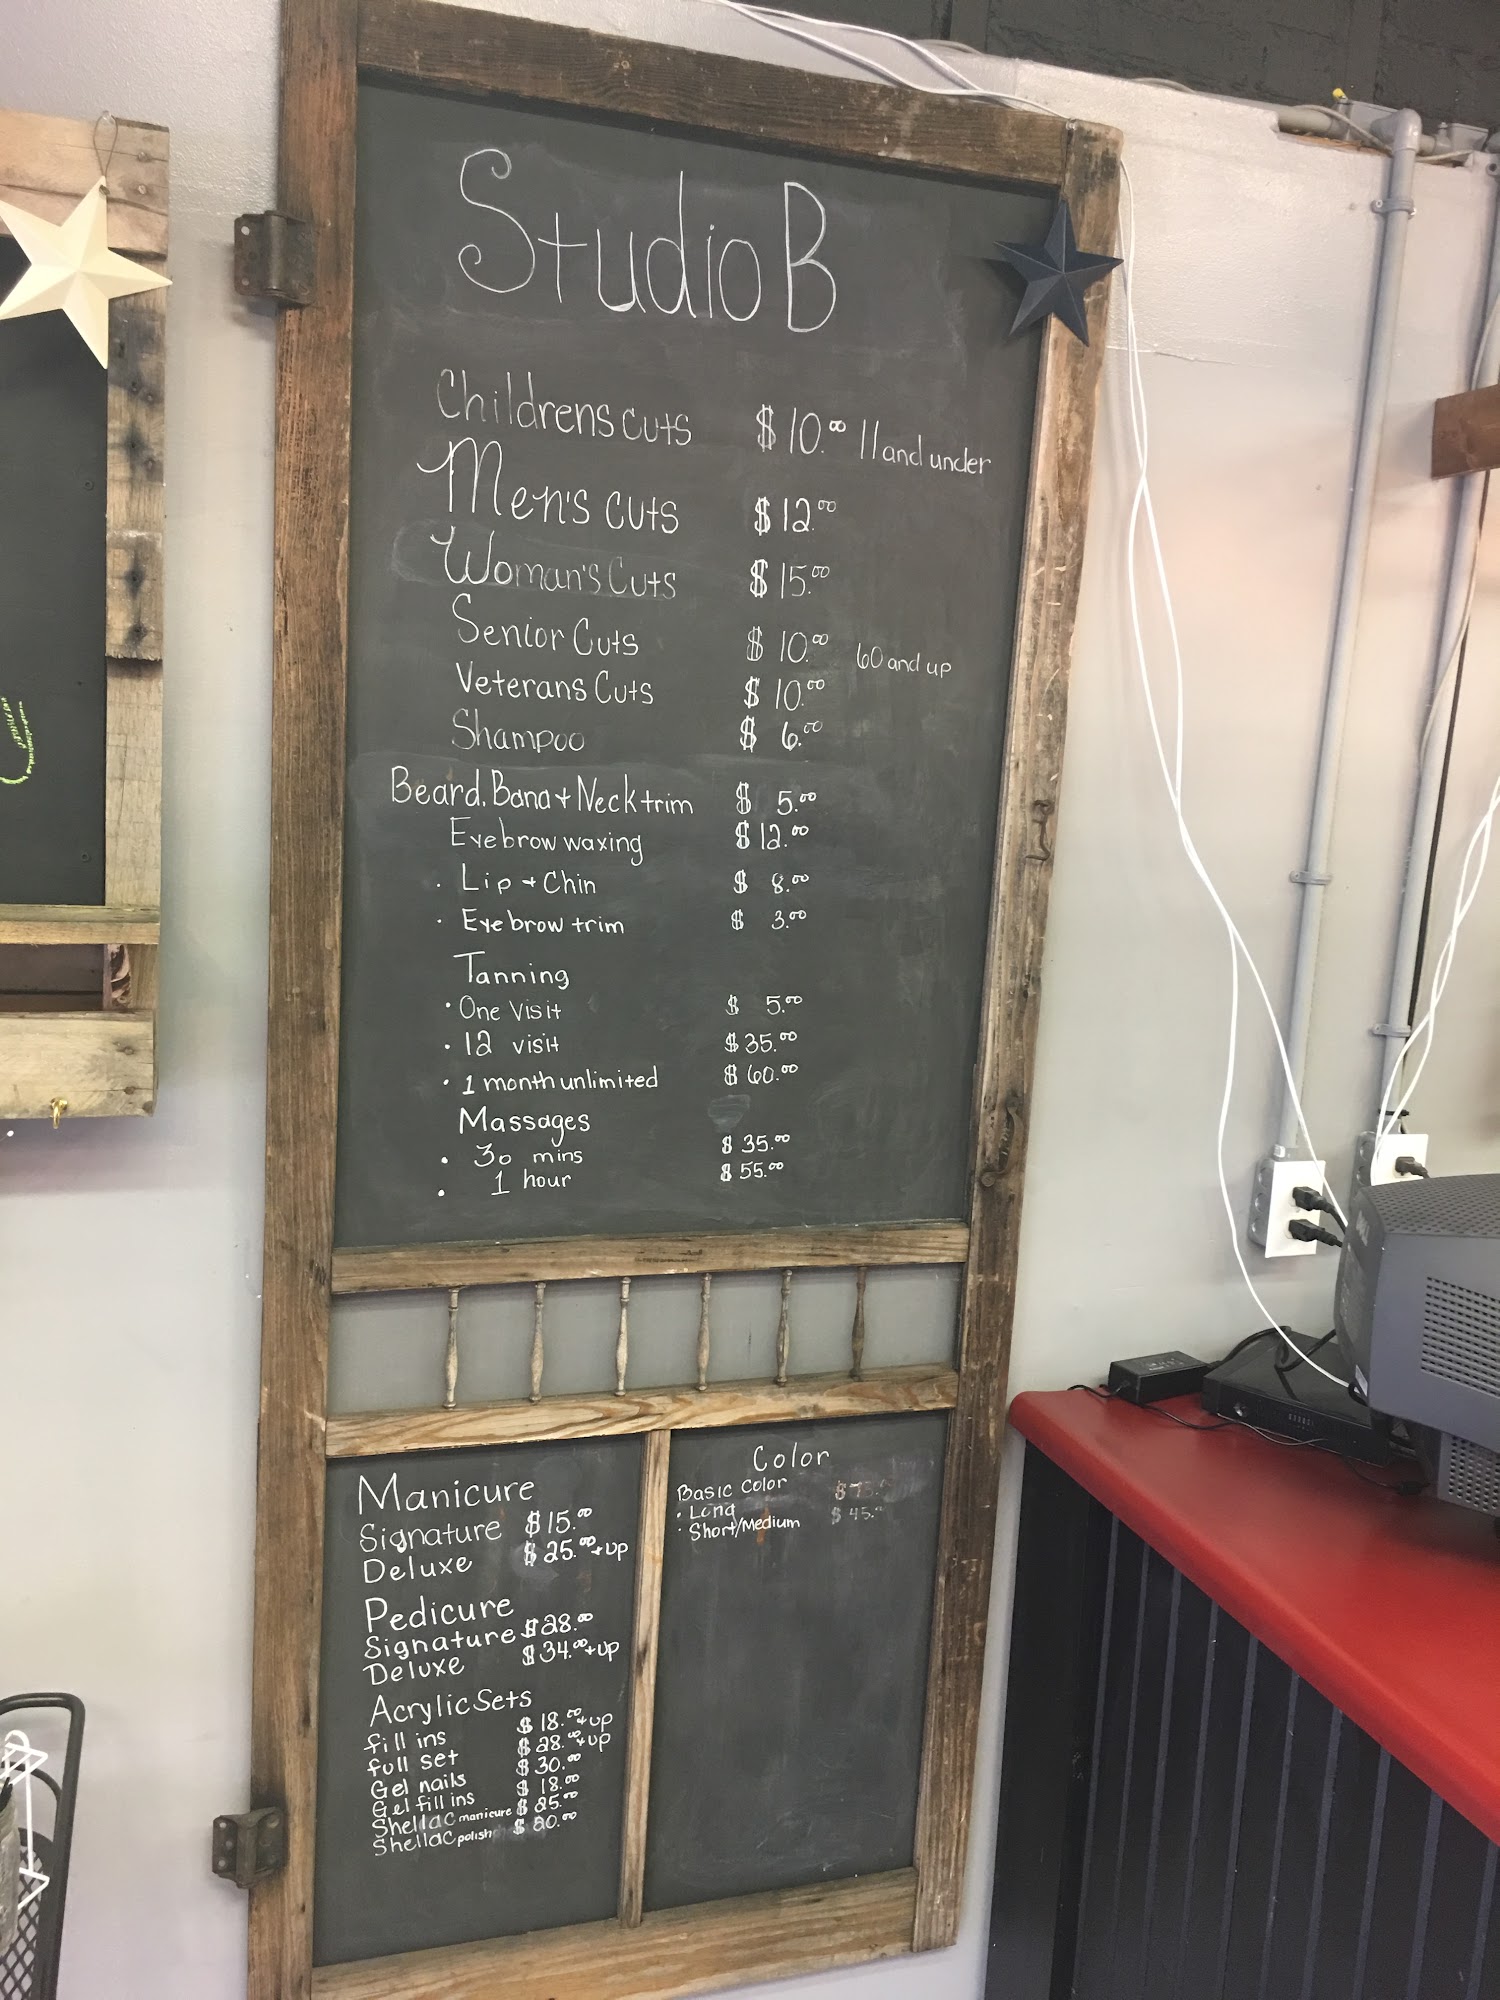 Studio B
Childrens cuts $10.00 11 and under
Men's cuts $12.00
Woman's Cuts $15.00
Senior Cuts $10.00 60 and up
Veterans Cuts $10.00
Shampoo $6.00
Beard, Bang + Neck trim $5.00
Eyebrow waxing $12.00
· Lip + Chin $8.00
· Eyebrow trim $3.00
Tanning
· One Visit $5.00
· 12 visit $35.00
· 1 month unlimited $60.00
Massages
· 30 mins $35.00
· 1 hour $55.00
Manicure
Signature $15.00
Deluxe $25.00 + up
Pedicure
Signature $28.00
Deluxe $34.00 + up
Acrylic Sets
fill ins $18.00 + up
full set $28.00 + up
Gel nails $30.00
Gel fill ins $18.00
Shellac manicure $25.00
Shellac polish $20.00
Color
Basic Color
· Long $75.00
· Short/Medium $45.00